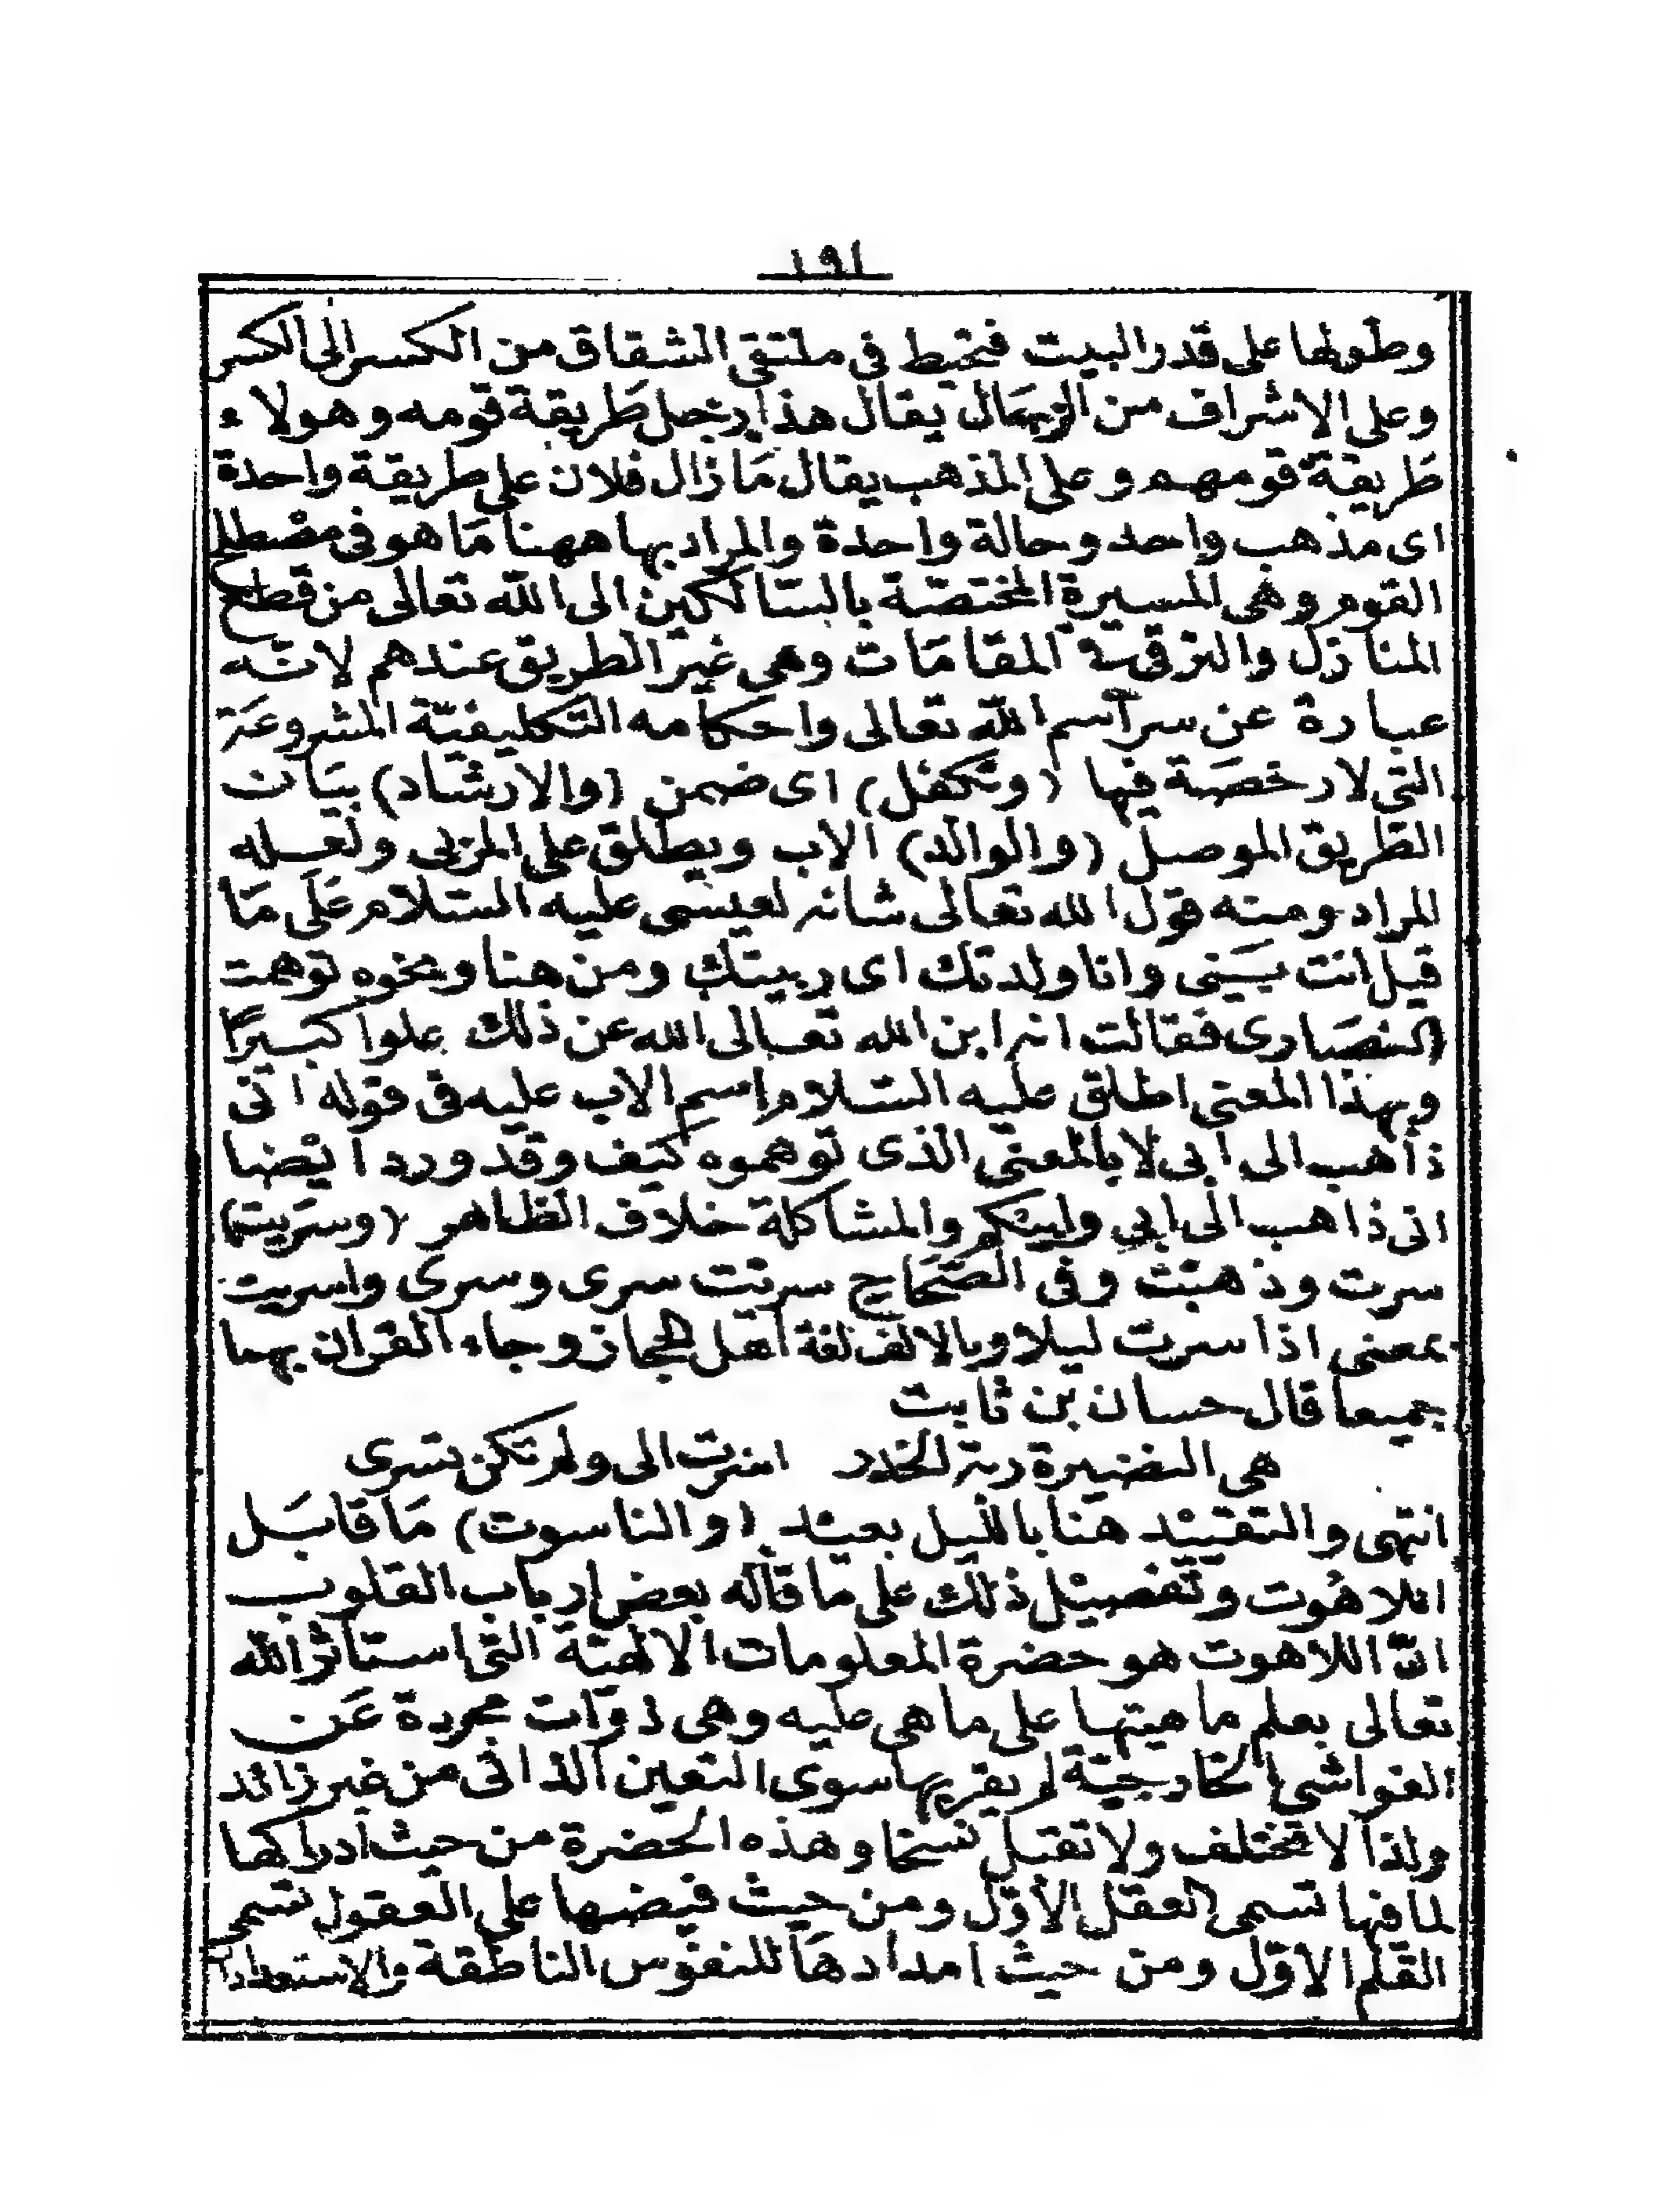 ١٩١
وطولها على قدر البيت فتخيط فى ملتقى الشقاق من الكسر الى الكسر
وعلى الاشراف من الرجال يقال هذا رجل طريقة قومه وهولاء
طريقة قومهم وعلى المذهب يقال مَا زال فلان على طريقة واحدة
اى مذهب واحد وحالة واحدة والمراد بها ههنا مَا هو فى مصْطلح
القوم وهى المسيرة المختصّة بالسّالكين الى الله تعالى من قطع
المنازل والترقى فى المقامَات وهى غير الطريق عندهم لانّه
عبارة عن مراسم الله تعالى واحكامه التكليفيّة المشروعَة
التى لا رخصَة فيها (وتكفل) اى ضمن (والارشاد) بيَان
الطريق الموصل (والوالد) الاب ويطلق على المربى ولعله
المراد ومنه قول الله تعالى شانه لعيسى عليه السّلام عَلَى مَا
قيل انت بنيى وانا ولدتك اى ربيتك ومن هنا ونحوه توهمت
النصَارى فقالت انه ابن الله تعالى الله عن ذلك علوا كبيرًا
وبهذا المعنى اطلق عليه السّلام اسم الاب عليه فى قوله انى
ذاهب الى ابى لا بالمعنى الذى توهموه كيَف وقد ورد ايْضا
انى ذاهب الى ابي وابيْكم والمشاكلة خلاف الظاهر (وسرَيت)
سرت وذهبت وفى الصّحَاح سريت سرى وسرى واسريت
بمعنى اذا سرت ليلا وبالالف لغة اهل الحجاز وجاء القران بهما
جميعا قال حسان بن ثابت
هى النضيرة ربة الخدر اسرت الى ولم تكن تسرى
انتهى والتقييْد هنا بالليل بعيْد (والناسوت) مَا قابَل
اللاهُوت وتفصيْل ذلك على ما قاله بعض ارباب القلوب
انّ اللاهوت هو حضرة المعلومات الالهيّة التى استاثر الله
تعالى بعلم ماهيتها على ما هى عليه وهى ذوات مجردة عَن
الغواشى الخارجيّة لم يقربها سوى التعين الذاتى من غير زائد
ولذا لا تختلف ولا تقبل نسخا وهذه الحضرة من حيث ادراكها
لما فيها تسمى العقل الاوّل ومن حيث فيضها على العقول تسمى
القلم الاوّل ومن حيث امدادهَا للنفوس الناطقة والاستعداد